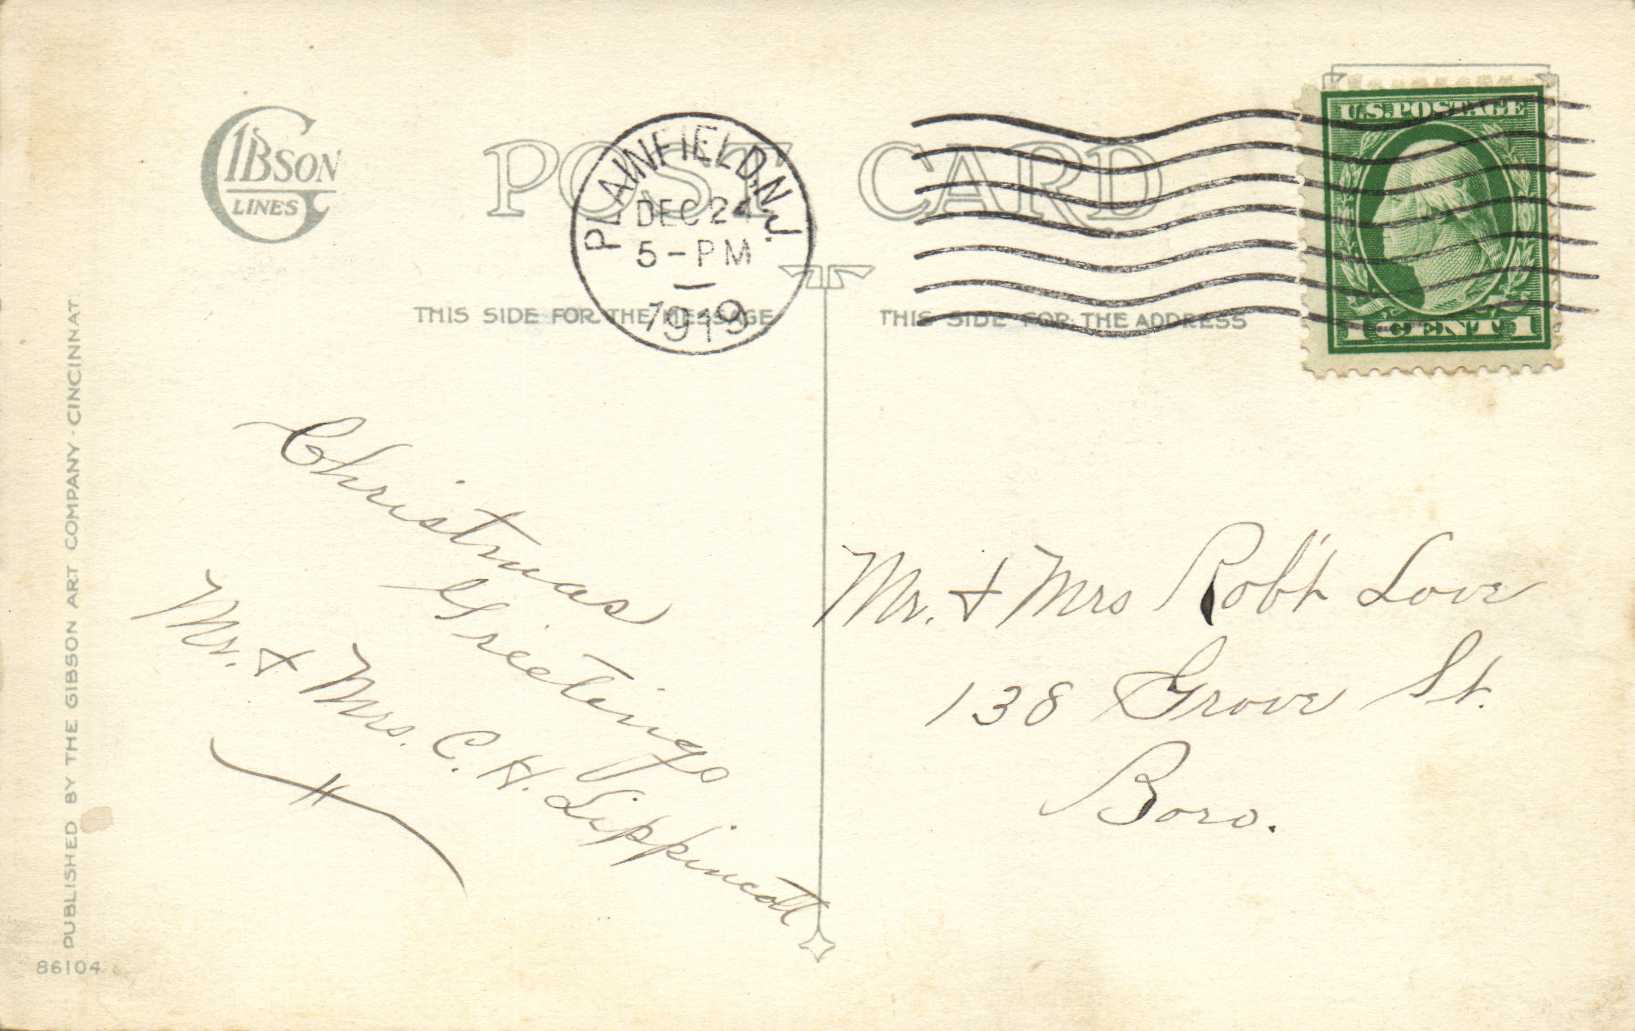 GIBSON
LINES
POST CARD
PLAINFIELD, N.J.
DEC 24
5-PM
1919
U.S. POSTAGE
1 CENT 1
THIS SIDE FOR THE MESSAGE
THIS SIDE FOR THE ADDRESS
Christmas
Greetings
Mr. & Mrs. C. H. Lippincott
Mr. & Mrs Rob't Love
138 Grove St.
Boro.
PUBLISHED BY THE GIBSON ART COMPANY-CINCINNAT
86104